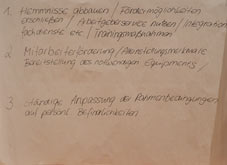 1. Hemmnisse abbauen / Fördermöglichkeiten
erschließen / Arbeitgeberservice nutzen / Integrations
fachdienste etc. / Trainingsmaßnahmen
2. Mitarbeiterförderung /
Bereitstellung des notwendigen Equipments /
3 Ständige Anpassung der Rahmenbedingungen
auf persönl. Befindlichkeiten